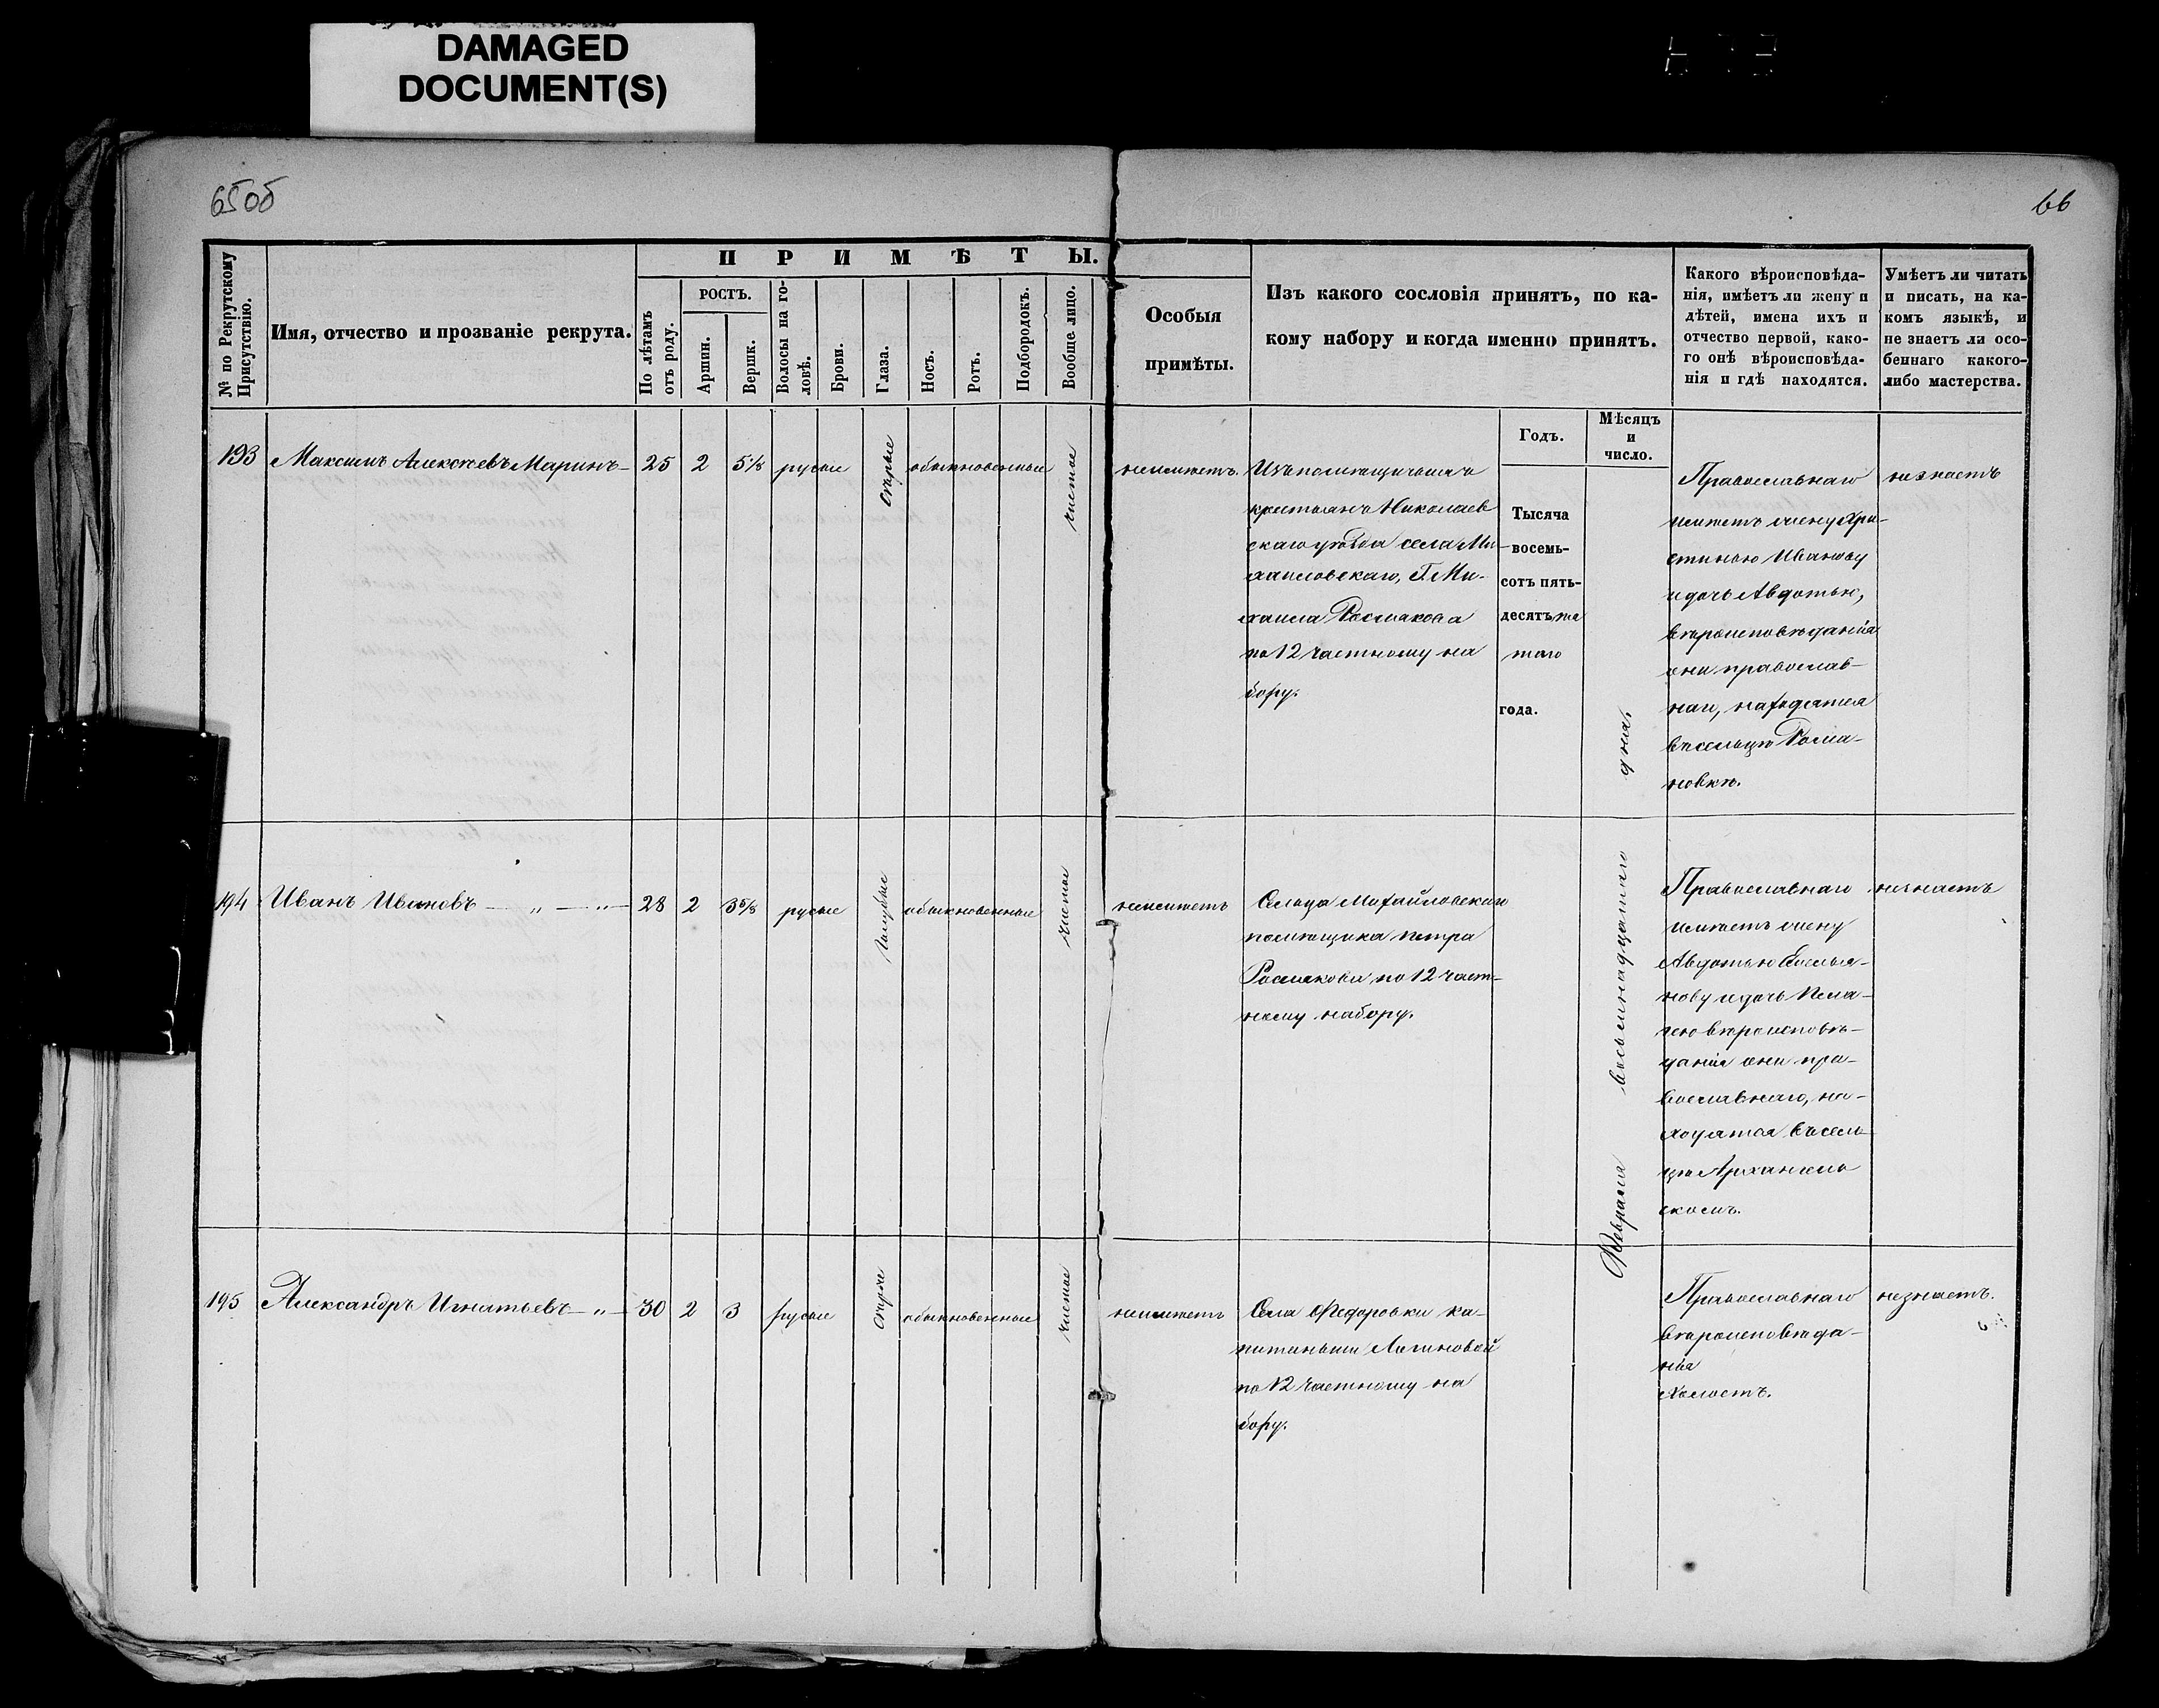 DAMAGED
DOCUMENT(S)
65об
66
ПРИМѢТЫ.
№ по Рекрутскому
Присутствію.
Имя, отчество и прозваніе рекрута.
По лѣтамъ
отъ роду.
РОСТЪ.
Аршин.
Вершк.
Волосы на го-
ловѣ.
Брови.
Глаза.
Носъ.
Ротъ.
Подбородокъ.
Вообще лицо.
Особыя
примѣты.
Изъ какого сословія принятъ, по ка-
кому набору и когда именно принятъ.
Какого вѣроисповѣда-
нія, имѣетъ ли жену и
дѣтей, имена ихъ и
отчество первой, како-
го онѣ вѣроисповѣда-
нія и гдѣ находятся.
Умѣетъ ли читать
и писать, на ка-
комъ языкѣ, и
не знаетъ ли осо-
беннаго какого-
либо мастерства.
Годъ.
Мѣсяцъ
и
число.
193 Максимъ Алексѣевъ Маринъ 25 2 5⅛ русые сѣрые обыкновенные чистое
неимѣетъ.
Изъ помѣщичьихъ
крестьянъ Николаев
скаго уѣзда села Ми-
хаиловскаго, Г. Ми-
хаила
по 12 частному на
бору.
Тысяча
восемь-
сотъ пять-
десятъ пя
таго
года.
Февраля восьмнадцатаго дня.
Православнаго
имѣетъ жену Хри-
стинью Иванову
и дочь Авдотью,
вѣроисповѣданія
они православ-
наго, находятся
въ сельцѣ Рома-
новкѣ.
незнаетъ
194 Иванъ Ивановъ — „ — „ — 28 2 3⅝ русые голубые обыкновенные чистое
неимѣетъ
Сельца Михайловскаго
помѣщика Петра
по 12 част-
ному набору.
Православнаго
имѣетъ жену
Авдотью Емелья-
нову и дочь Пела-
гею вѣроисповѣ-
данія они пра-
вославнаго, на-
ходятся въ сель-
цѣ Архангель
скомъ.
незнаетъ
195 Александръ Игнатьевъ — „ — 30 2 3 русые сѣрые обыкновенные чистое
неимѣетъ
Села Федоровки ка-
питанши Логиновой
по 12 частному на
бору.
Православнаго
вѣроисповѣда-
нія
Холостъ.
незнаетъ.